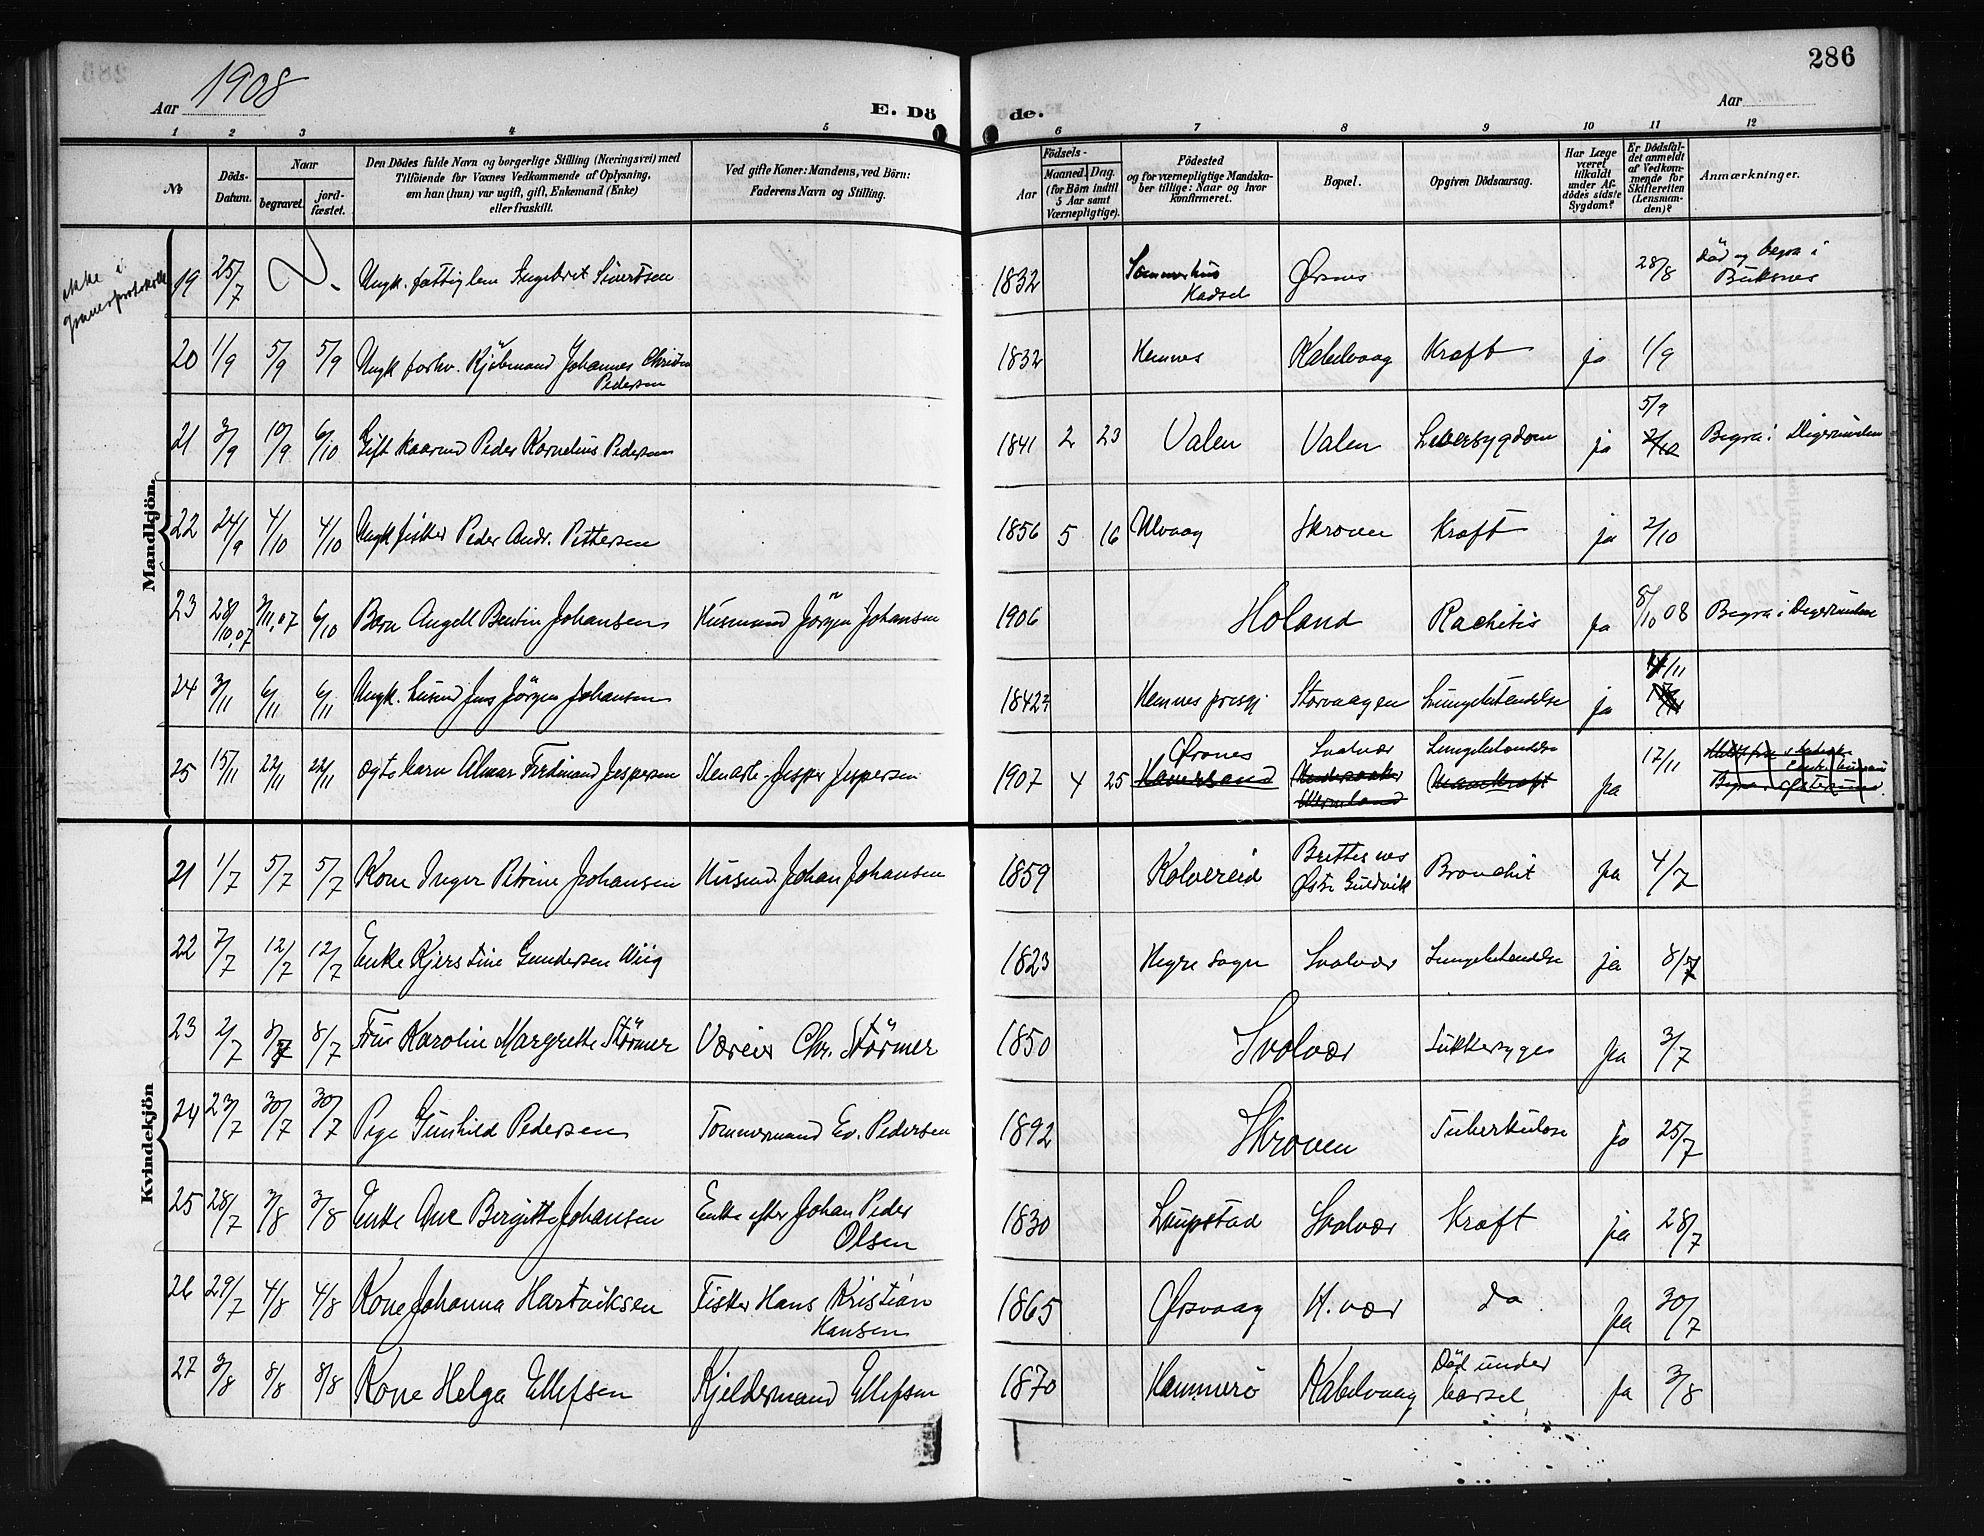 286
Aar 1908
E. Dö
de.
Aar
1 2 3 4 5 6 7 8 9 10 11 12
No
Döds-
Datum.
Naar
begravet.
jord-
fæstet.
Den Dödes fulde Navn og borgerlige Stilling (Næringsvei) med
Tilföiende for Voxnes Vedkommende af Oplysning,
om han (hun) var ugift, gift, Enkemand (Enke)
eller fraskilt.
Ved gifte Koner: Mandens, ved Börn:
Faderens Navn og Stilling.
Födsels-
Aar
Maaned. Dag.
(for Börn indtil
5 Aar samt
Værnepligtige).
Födested
og for værnepligtige Mandska-
ber tillige: Naar og hvor
konfirmeret.
Bopæl.
Opgiven Dödsaarsag.
Har Læge
været
tilkaldt
under Af-
dödes sidste
Sygdom?
Er Dödsfal-
det anmeldt
af Vedkom-
mende for
Skifteretten
(Lensman-
den)?
Anmærkninger.
ikke i
Mandkjön.
19 25/7 Ungk. fattiglem Engebret Sivertsen 1832 Sommerhus Hadsel Ørsnes 28/8 Död og begra i Buksnes
20 1/9 5/9 5/9 Ungk forhv. Kjöbmand Johannes Christian Pedersen 1832 Hemnes Kabelvaag Kræft ja 1/9
21 3/9 10/9 6/10 Gift kaarmd Peder Kornelius Pedersen 1841 2 23 Valen Valen Leversygdom ja 5/9 2/10 Begra i Digermulen
22 24/9 4/10 4/10 Ungk fisker Peder Andr. Pettersen 1856 5 16 Ulvaag Skroven Kræft ja 2/10
23 28/10,07 3/11,07 6/10 Barn Angell Bentin Johansen Husmand Jörgen Johansen 1906 Holand Rachitis ja 8/10 08 Begra i Digermulen
24 3/11 6/11 6/11 Ungk. husmd Jens Jörgen Johansen 1842 Hemnes prestgj Storvaagen Lungebetændelse ja 4/11
25 15/11 22/11 22/11 ægte barn Almar Ferdinand Jespersen Stenarb. Jesper Jespersen 1907 4 25 Ørsnes Svolvær Lungebetændelse ja 17/11
Kvindekjön
21 1/7 5/7 5/7 Kone Inger Petrine Johansen Husmd. Johan Johansen 1859 Kolvereid Brettesnes Østre Guldvik Bronchit ja 4/7
22 7/7 12/7 12/7 Enke Kjerstine Gundersen Wiig 1823 Hegre Sogn Svolvær Lungebetændelse ja 8/7
23 2/7 8/7 8/7 Frue Karolin Margrethe Störmer Væreier Chr. Störmer 1850 Svolvær Sukkersyge ja 3/7
24 23/7 30/7 30/7 Pige Gunhild Pedersen Tommermand Ev. Pedersen 1892 Skroven Tuberkulose ja 25/7
25 28/7 3/8 3/8 Enke Ane Birgitte Johansen Enke efter Johan Peder Olsen 1830 Laupstad Svolvær Kræft ja 28/7
26 29/7 4/8 4/8 Kone Johanna Hartviksen Fisker Hans Kristian Hansen 1865 Ørsvaag H. vær do ja 30/7
27 3/8 8/8 8/8 Kone Helga Ellefsen Kjeldermand Ellefsen 1870 Hammerö Kabelvaag Död under barsel ja 3/8